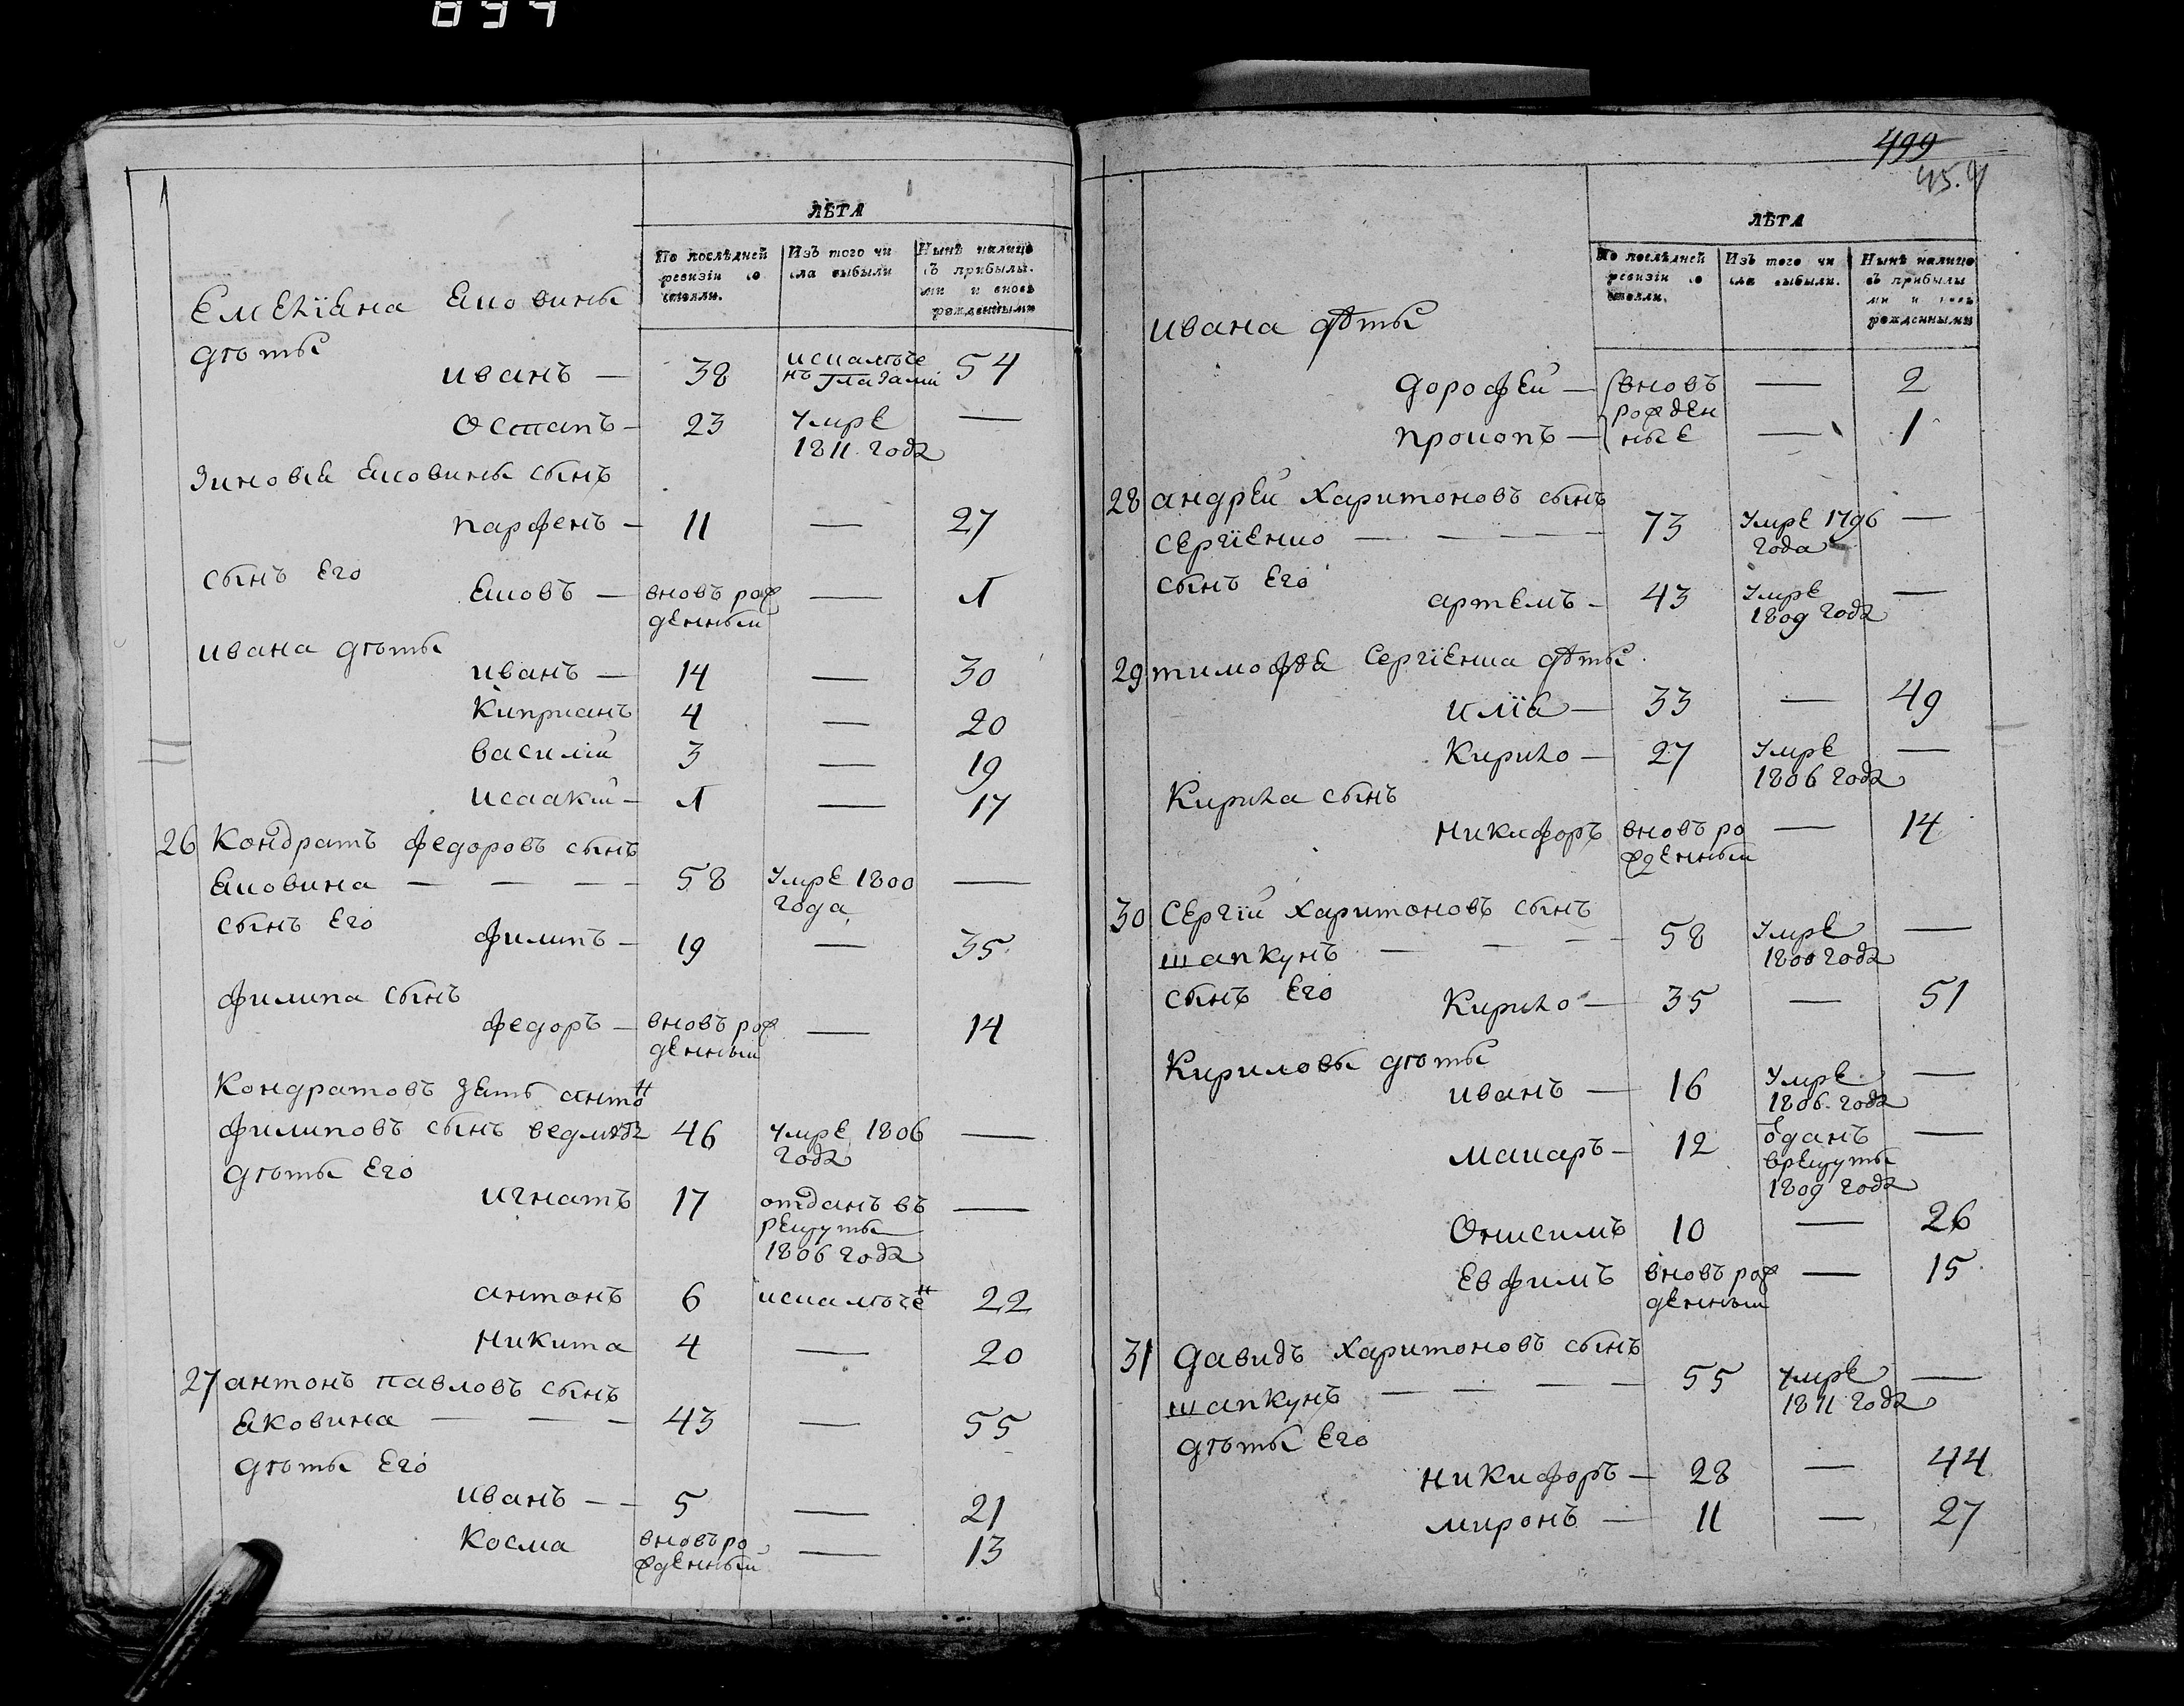 ЛѢТА
По послѣдней ревизіи со стояли.
Изъ того чи сла выбыли
Нынѣ налицо съ прибылы. ми и вновь рожденными
Емеліѧна Ѧковины
дѣты
иванъ — 38 искалѣче нъ глазами 54
Остапъ — 23 умре 1811 года —
Зиновіѧ Ѧковины сынъ
парфенъ — 11 — 27
сынъ его
Ѧковъ — вновъ рож денный — 1
ивана дѣты
иванъ — 14 — 30
Киприанъ 4 — 20
василій 3 — 19
исаакій — 1 — 17
26 Кондратъ федоровъ сынъ
Ѧковина — — — — 58 умре 1800 года —
сынъ его
филипъ — 19 — 35
филипа сынъ
федоръ — вновъ рож денный — 14
Кондратовъ зѧть антон
филиповъ сынъ ведмѣдь 46 умре 1806 года —
дѣты его
игнатъ 17 отданъ въ рекруты 1806 года —
антонъ 6 искалѣчен 22
никита 4 — 20
27 антонъ павловъ сынъ
Ѧковина — — — 43 — 55
дѣты его
иванъ — — 5 — 21
Косма вновъ ро жденный — 13
499
ЛѢТА
По послѣдней ревизіи со стояли.
Изъ того чи сла выбыли.
Нынѣ налицо съ прибылы ми и вновь рожденными
ивана дѣты
дорофей — вновъ — 2
рожден
прокопъ — ные — 1
28 андрей харитоновъ сынъ
сергіенко — — — — 73 умре 1796 года —
сынъ его
артемъ — 43 умре 1809 года —
29 тимофѣѧ сергіенка дѣты
иліѧ — 33 — 49
Кирило — 27 умре 1806 года —
Кирила сынъ
никифоръ вновъ ро жденный — 14
30 Сергій харитоновъ сынъ
шапкунъ — — — 58 умре 1800 года —
сынъ его
Кирило — 35 — 51
Кириловы дѣты
иванъ — 16 умре 1806 года —
макаръ — 12 ѡданъ врекруты 1809 года —
Онисимъ 10 — 26
Евфимъ вновъ рож денный — 15
31 давидъ харитоновъ сынъ
шапкунъ — — — — 55 умре 1811 года —
дѣты его
никифоръ — 28 — 44
миронъ — 11 — 27